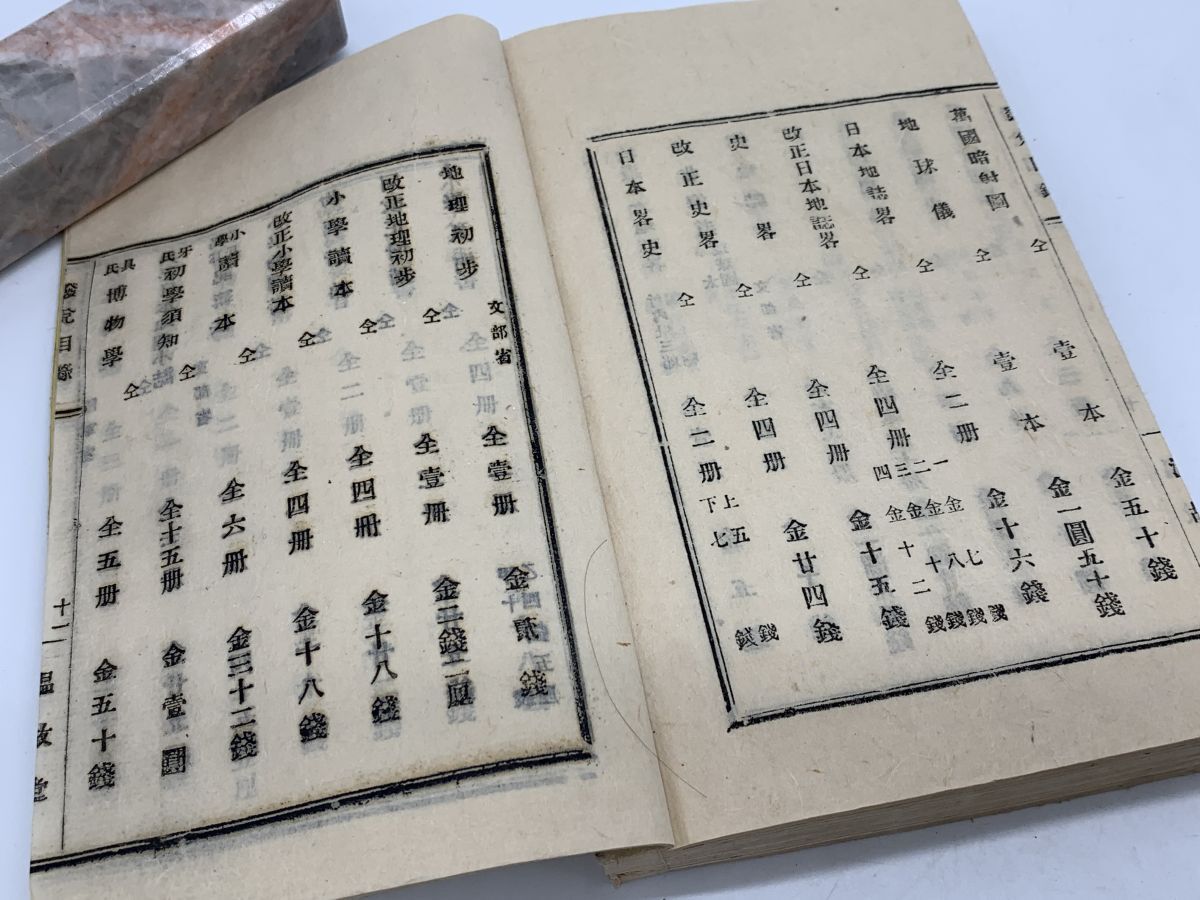 萬國暗射圖 仝 壹本 金五十錢
地球儀 仝 壹本 金一圓五十錢
日本地誌畧 仝 全二册 金十六錢
改正日本地誌畧 仝 全四册 一二三四 金七錢 金八錢 金十錢 金十二錢
史畧 仝 全四册 金十五錢
改正史畧 仝 全四册 金廿四錢
日本畧史 仝 全二册 上五錢 下七錢
文部省
地理初步 仝 全壹册 金 錢
改正地理初步 仝 全壹册 金三錢二 
小學讀本 仝 全四册 金十八錢
改正小學讀本 仝 全四册 金十八錢
小學讀本 仝 全六册 金三十二錢
牙氏初學須知 仝 全十五册 金壹圓
具氏博物學 仝 全五册 金五十錢
發兌目錄 十二 堂